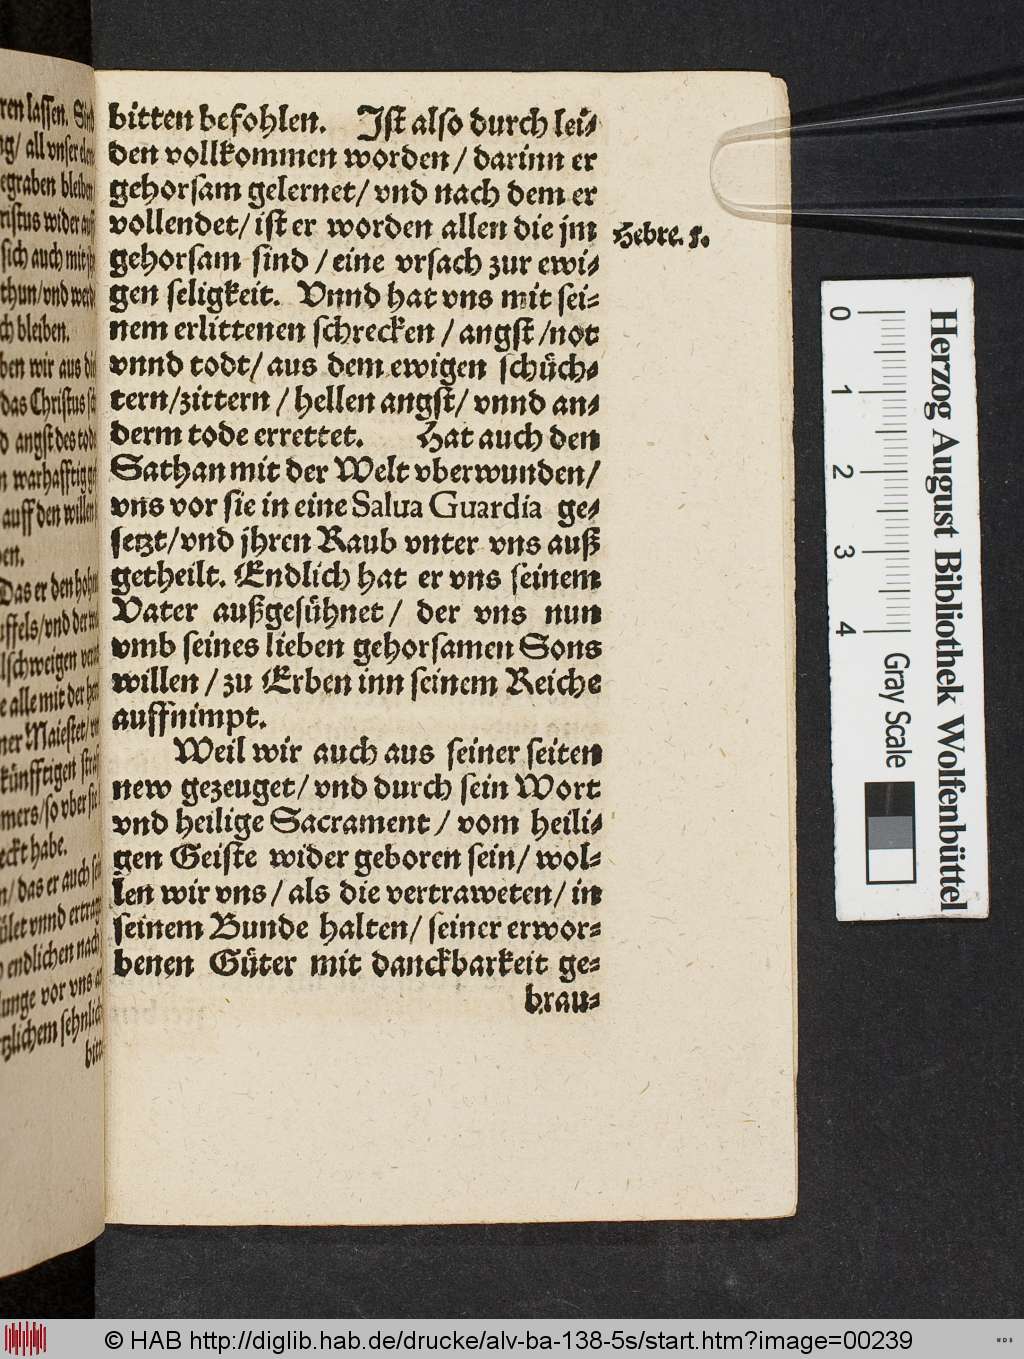 bitten befohlen. Iſt alſo durch lei⸗
den vollkommen worden / darinn er
gehorſam gelernet / vnd nach dem er
vollendet / iſt er worden allen die jm
gehorſam ſind / eine vrſach zur ewi⸗
gen ſeligkeit. Vnnd hat vns mit ſei⸗
nem erlittenen ſchrecken / angſt / not
vnnd todt / aus dem ewigen ſchüch⸗
tern / zittern / hellen angſt / vnnd an⸗
derm tode errettet. Hat auch den
Sathan mit der Welt vberwunden /
vns vor ſie in eine Salua Guardia ge⸗
ſetzt / vnd jhren Raub vnter vns auß
getheilt. Endlich hat er vns ſeinem
Vater außgeſühnet / der vns nun
vmb ſeines lieben gehorſamen Sons
willen / zu Erben inn ſeinem Reiche
auffnimpt.
Weil wir auch aus ſeiner ſeiten
new gezeuget / vnd durch ſein Wort
vnd heilige Sacrament / vom heili⸗
gen Geiſte wider geboren ſein / wol⸗
len wir vns / als die vertraweten / in
ſeinem Bunde halten / ſeiner erwor⸗
benen Güter mit danckbarkeit ge⸗
brau⸗
Hebre. 5.
ren laſſen.
all vnſer
egraben bleiben
riſtus wider auff
ſich auch mit
thun / vnd
ch bleiben.
ben wir aus
das Chriſtus
angſt des
warhafftig
auff den willen
Das er den
vnd der
e alle mit der
ner Maieſtet
künfftigen
mers / ſo vber
eckt habe.
das er auch
vnnd
endlichen nach
vor vns
ſehnlich
0 1 2 3 4
Gray Scale
Herzog August Bibliothek Wolfenbüttel
© HAB http://diglib.hab.de/drucke/alv-ba-138-5s/start.htm?image=00239
WDB